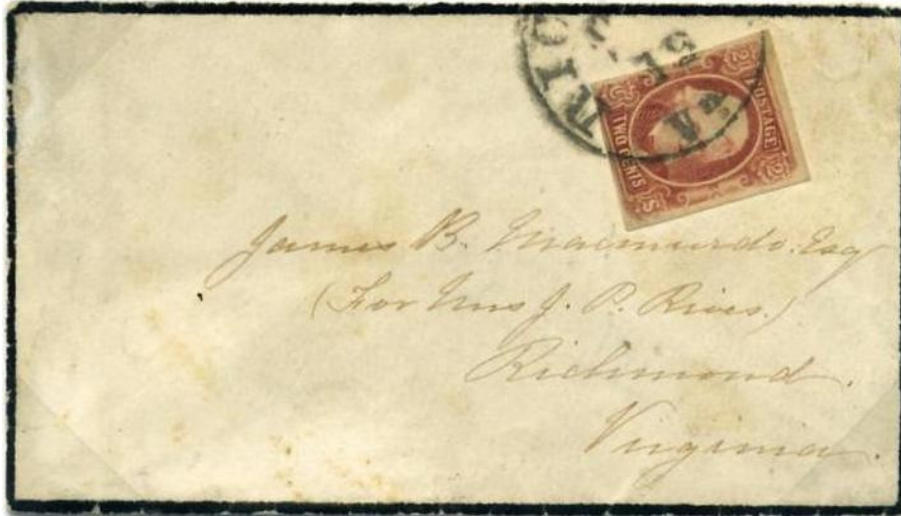 RIC
VA
SE
POSTAGE
TWO CENTS
James B. Macmurdo. Esq
(For Mrs J. P. Rives.)
Richmond.
Virginia.